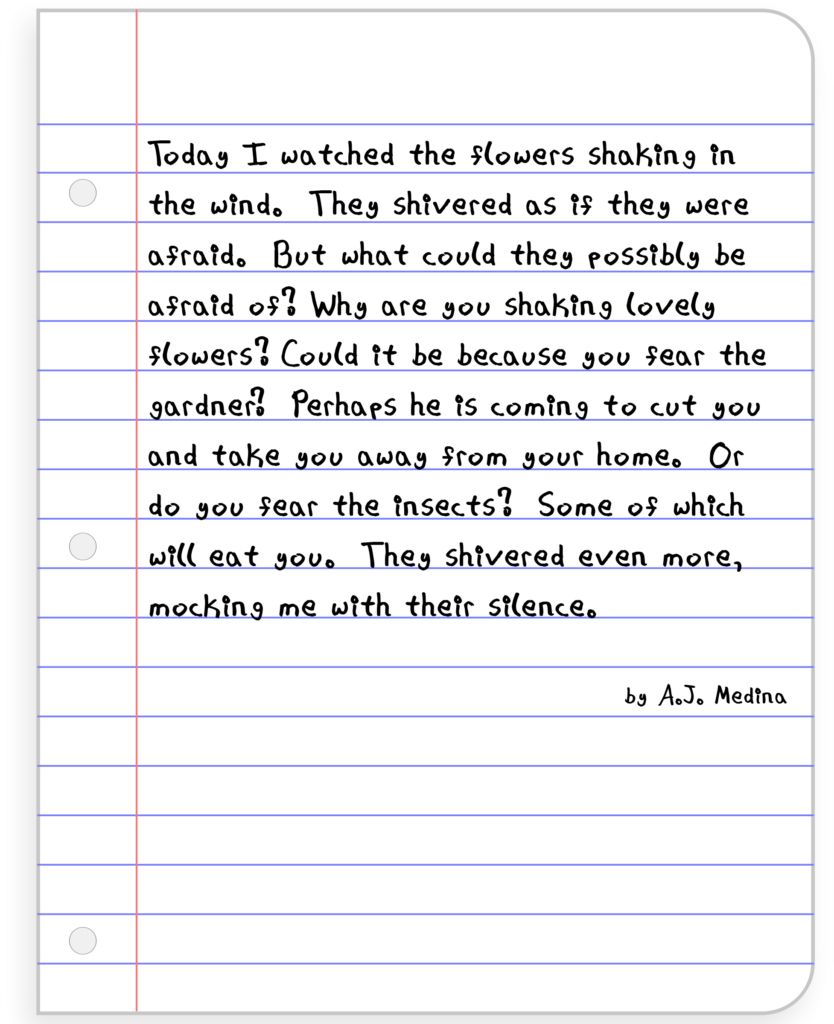 Today I watched the flowers shaking in
the wind. They shivered as if they were
afraid. But what could they possibly be
afraid of? Why are you shaking lovely
flowers? Could it be because you fear the
gardner? Perhaps he is coming to cut you
and take you away from your home. Or
do you fear the insects? Some of which
will eat you. They shivered even more,
mocking me with their silence.
by A.J. Medina